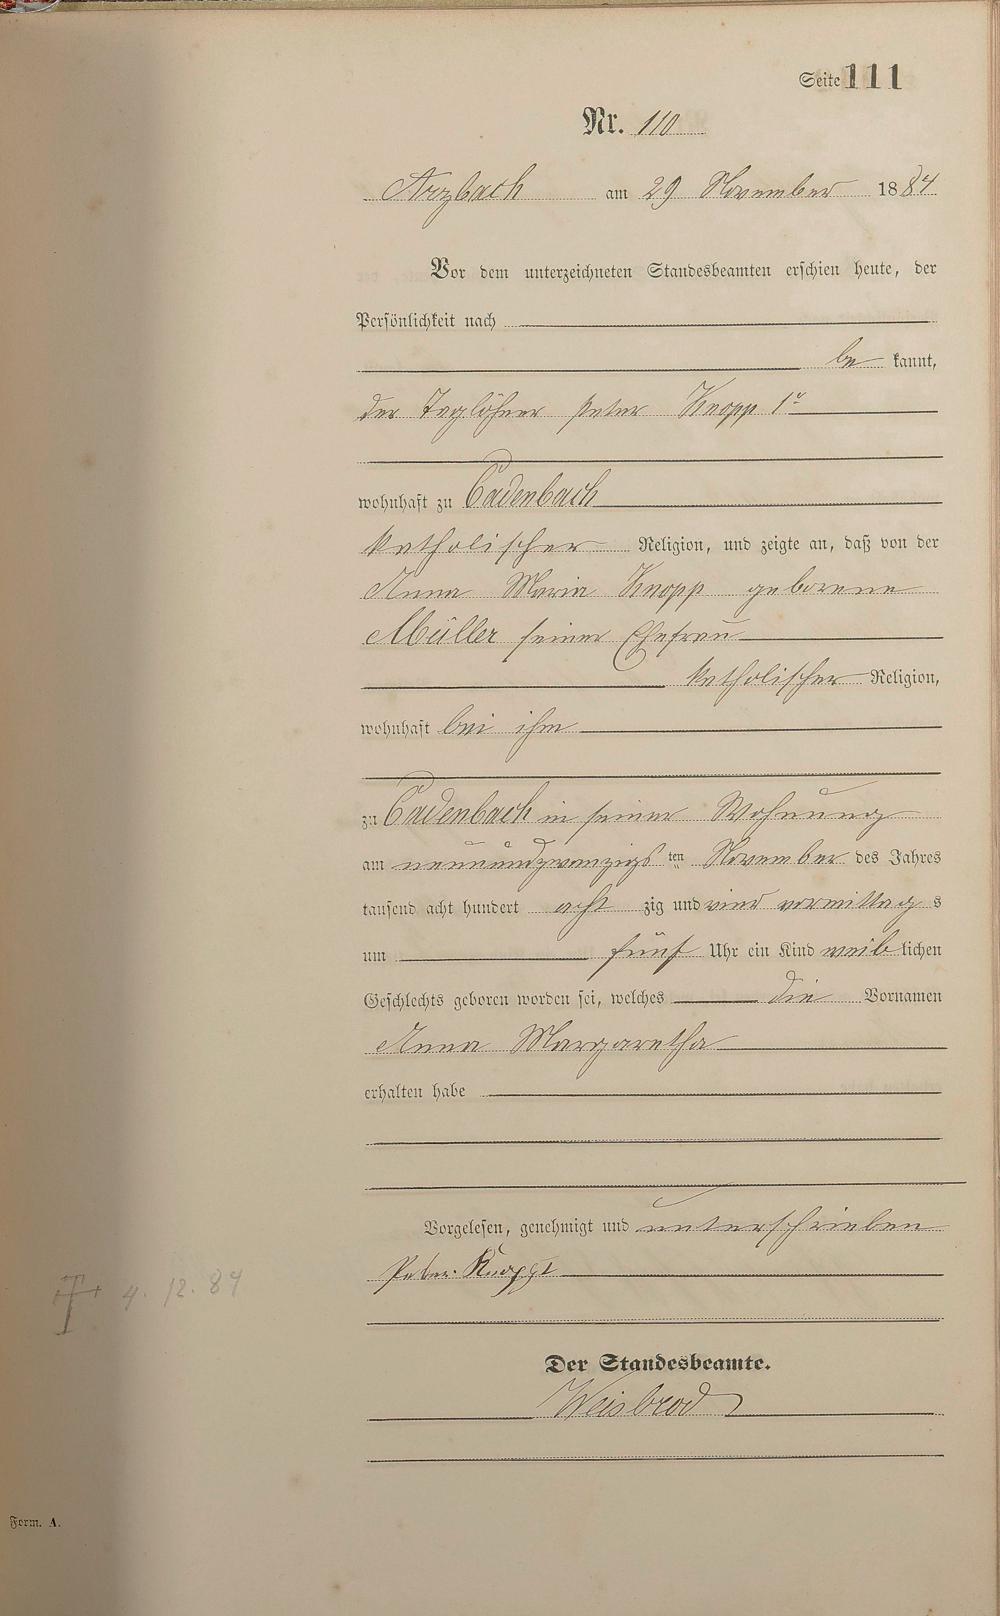 Seite 111
Nr. 110
Arzbach am 29 November 1884
Vor dem unterzeichneten Standesbeamten erschien heute, der
Persönlichkeit nach
be kannt,
der Taglöhner Peter Knopp 1r
wohnhaft zu Cadenbach
katholischer Religion, und zeigte an, daß von der
Anna Maria Knopp geborene
Müller seiner Ehefrau
katholischer Religion,
wohnhaft bei ihm
zu Cadenbach in seiner Wohnung
am neunundzwanzigs ten November des Jahres
tausend acht hundert acht zig und vier vormittag s
um fünf Uhr ein Kind weib lichen
Geschlechts geboren worden sei, welches die Vornamen
Anna Margaretha
erhalten habe
Vorgelesen, genehmigt und unterschrieben
Peter Knopp 1
† 4. 12. 84
Der Standesbeamte.
Weisbrod
Form. A.